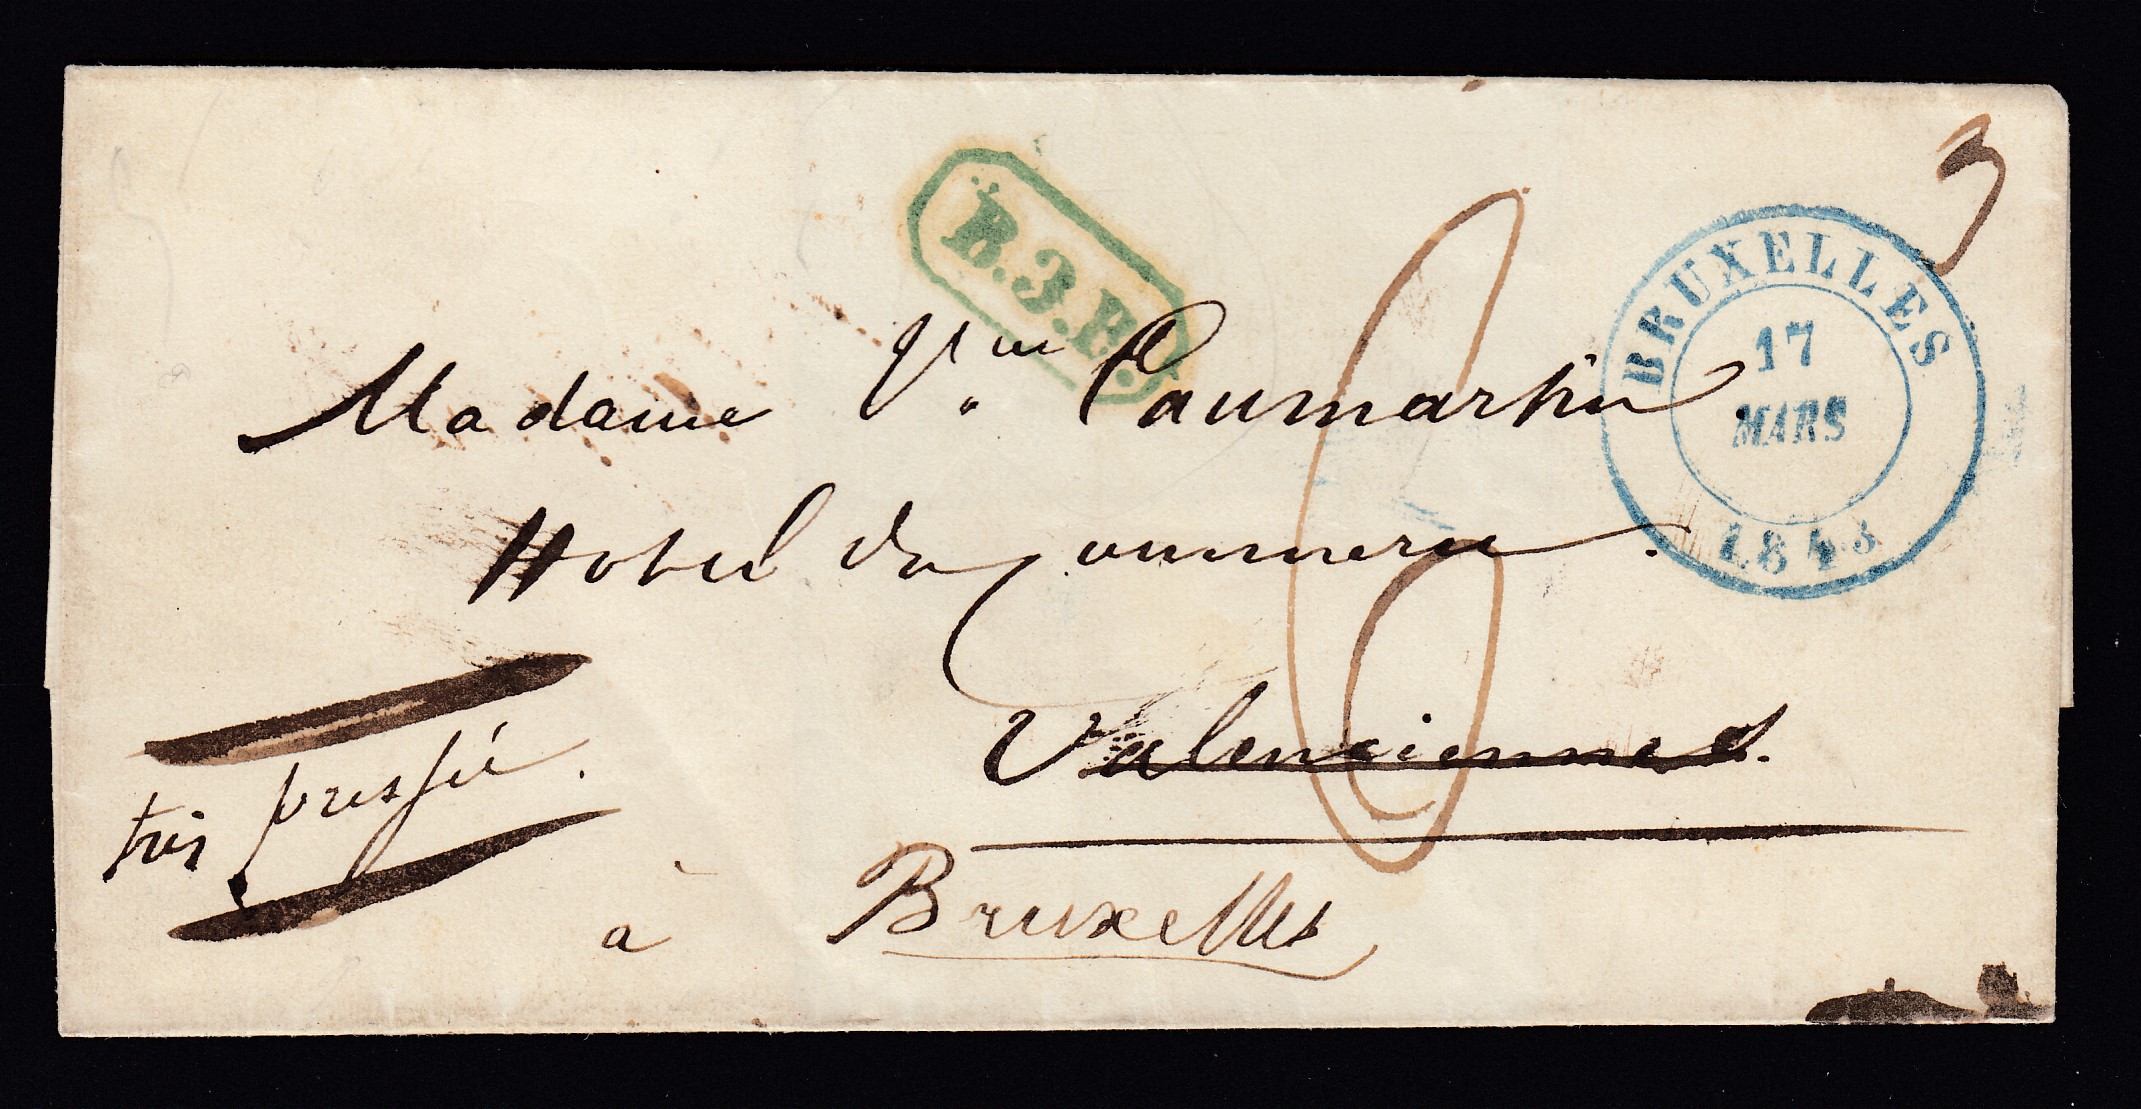 3
B.3.R.
BRUXELLES
17
MARS
1843
Madame Vve Caumartin
Hotel du Commerce.
Valenciennes.
très pressée.
à Bruxelles